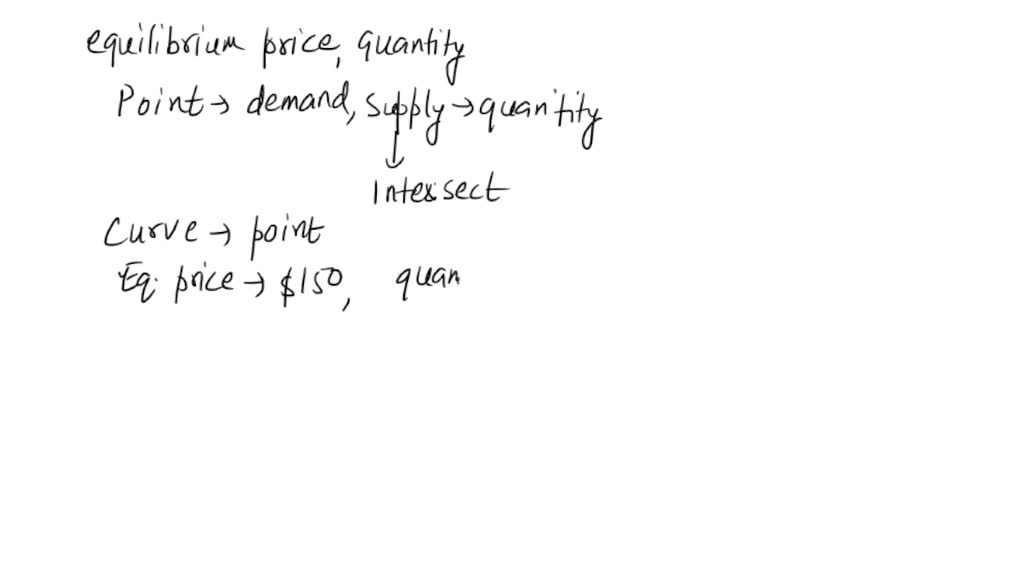 equilibrium price, quantity
Point → demand, supply → quanitity
↓
Intersect
Curve → point
Eq. price → $150, quan